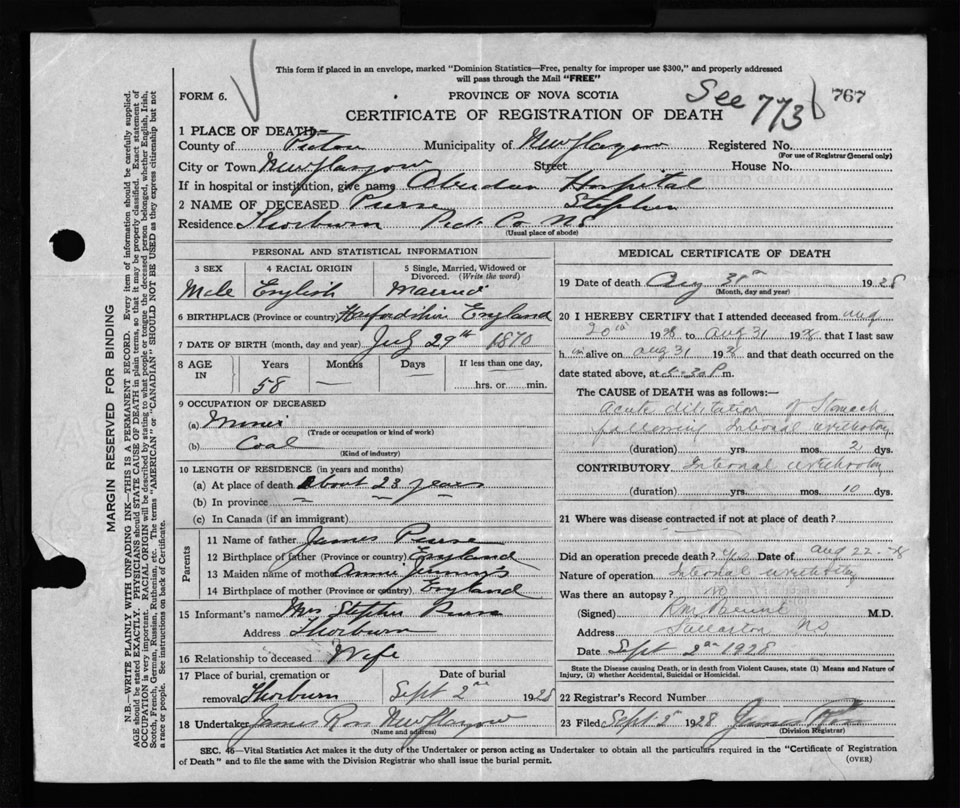 This form if placed in an envelope, marked "Dominion Statistics—Free, penalty for improper use $300," and properly addressed
will pass through the Mail "FREE"
FORM 6.
PROVINCE OF NOVA SCOTIA
See 773
767
CERTIFICATE OF REGISTRATION OF DEATH
1 PLACE OF DEATH—
County of Pictou Municipality of New Glasgow Registered No.
(For use of Registrar General only)
City or Town New Glasgow Street House No.
If in hospital or institution, give name Aberdeen Hospital
2 NAME OF DECEASED Purse Stephen
Residence Thorburn Pict Co NS
(Usual place of abode)
PERSONAL AND STATISTICAL INFORMATION
3 SEX
Male
4 RACIAL ORIGIN
English
5 Single, Married, Widowed or Divorced. (Write the word)
Married
6 BIRTHPLACE (Province or country) England
7 DATE OF BIRTH (month, day and year) July 29th 1870
8 AGE IN
Years
58
Months
—
Days
If less than one day,
hrs. or min.
9 OCCUPATION OF DECEASED
(a) Miner
(Trade or occupation or kind of work)
(b) Coal
(Kind of industry)
10 LENGTH OF RESIDENCE (in years and months)
(a) At place of death About 23 years
(b) In province
(c) In Canada (if an immigrant)
Parents
11 Name of father James Purse
12 Birthplace of father (Province or country) England
13 Maiden name of mother Annie
14 Birthplace of mother (Province or country) England
15 Informant's name Mrs Stephen Purse
Address Thorburn
16 Relationship to deceased Wife
17 Place of burial, cremation or removal Thorburn
Date of burial
Sept 2nd 1928
18 Undertaker James Ross New Glasgow
(Name and address)
MEDICAL CERTIFICATE OF DEATH
19 Date of death Aug 1928
(Month, day and year)
20 I HEREBY CERTIFY that I attended deceased from Aug
20th 1928 to Aug 31 1928 that I last saw
him alive on Aug 31 1928 and that death occurred on the
date stated above, at P m.
The CAUSE OF DEATH was as follows:—
Acute dilitation of Stomach
following Internal urethotomy
(duration) yrs. mos. 2 dys.
CONTRIBUTORY Internal urethotomy
(duration) yrs. mos. 10 dys.
21 Where was disease contracted if not at place of death?
Did an operation precede death? Yes Date of Aug 22-28
Nature of operation Internal urethotomy
Was there an autopsy? No
(Signed) M.D.
Address Stellarton NS
Date Sept 2nd 1928
State the Disease causing Death, or in death from Violent Causes, state (1) Means and Nature of Injury, (2) whether Accidental, Suicidal or Homicidal.
22 Registrar's Record Number
23 Filed Sept 5 1928 James Ross
(Division Registrar)
SEC. 46—Vital Statistics Act makes it the duty of the Undertaker or person acting as Undertaker to obtain all the particulars required in the "Certificate of Registration
of Death" and to file the same with the Division Registrar who shall issue the burial permit.
(OVER)
MARGIN RESERVED FOR BINDING
N.B.—WRITE PLAINLY WITH UNFADING INK—THIS IS A PERMANENT RECORD. Every item of information should be carefully supplied.
AGE should be stated EXACTLY. PHYSICIANS should STATE CAUSE OF DEATH in plain terms, so that it may be properly classified. Exact statement of
OCCUPATION is very important. RACIAL ORIGIN will be described by stating to what people or tongue the deceased person belonged, whether English, Irish,
Scotch, French, German, Russian, Ruthenian, etc. The terms "AMERICAN" or "CANADIAN" SHOULD NOT BE USED as they express citizenship but not
a race or people. See instructions on back of Certificate.